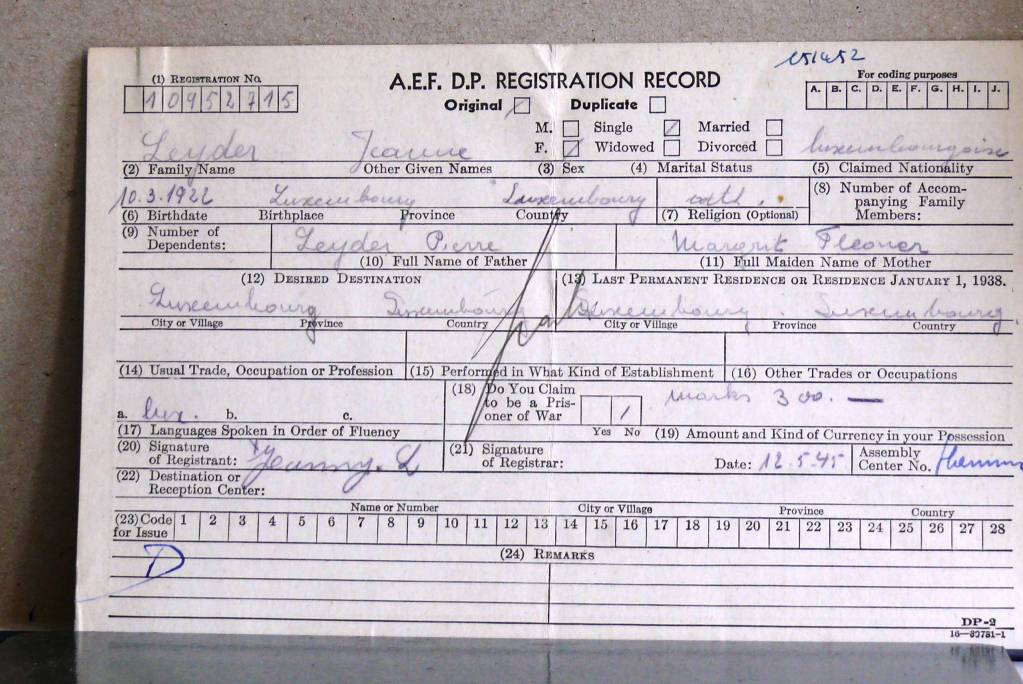 (1) REGISTRATION NO.
10952715
A.E.F. D.P. REGISTRATION RECORD
Original Duplicate
For coding purposes
A. B. C. D. E. F. G. H. I. J.
M. Single Married
F. Widowed Divorced
Leyder Jeanne luxembourgoise
(2) Family Name Other Given Names (3) Sex (4) Marital Status (5) Claimed Nationality
10.3.1922 Luxembourg Luxembourg cath.
(6) Birthdate Birthplace Province Country (7) Religion (Optional)
(8) Number of Accom-
panying Family
Members:
(9) Number of
Dependents:
Leyder Pierre
(10) Full Name of Father
Margrit
(11) Full Maiden Name of Mother
(12) DESIRED DESTINATION
(13) LAST PERMANENT RESIDENCE OR RESIDENCE JANUARY 1, 1938.
Luxembourg Luxembourg Luxembourg Luxembourg
City or Village Province Country City or Village Province Country
(14) Usual Trade, Occupation or Profession (15) Performed in What Kind of Establishment (16) Other Trades or Occupations
a. lux. b. c.
(17) Languages Spoken in Order of Fluency
(18) Do You Claim
to be a Pris-
oner of War
Yes No
Marks 300.—
(19) Amount and Kind of Currency in your Possession
(20) Signature
of Registrant: Jeanny. L
(21) Signature
of Registrar:
Date: 12.5.45
Assembly
Center No.
(22) Destination or
Reception Center:
Name or Number City or Village Province Country
(23) Code
for Issue
1 2 3 4 5 6 7 8 9 10 11 12 13 14 15 16 17 18 19 20 21 22 23 24 25 26 27 28
D
(24) REMARKS
DP-2
16—39781-1